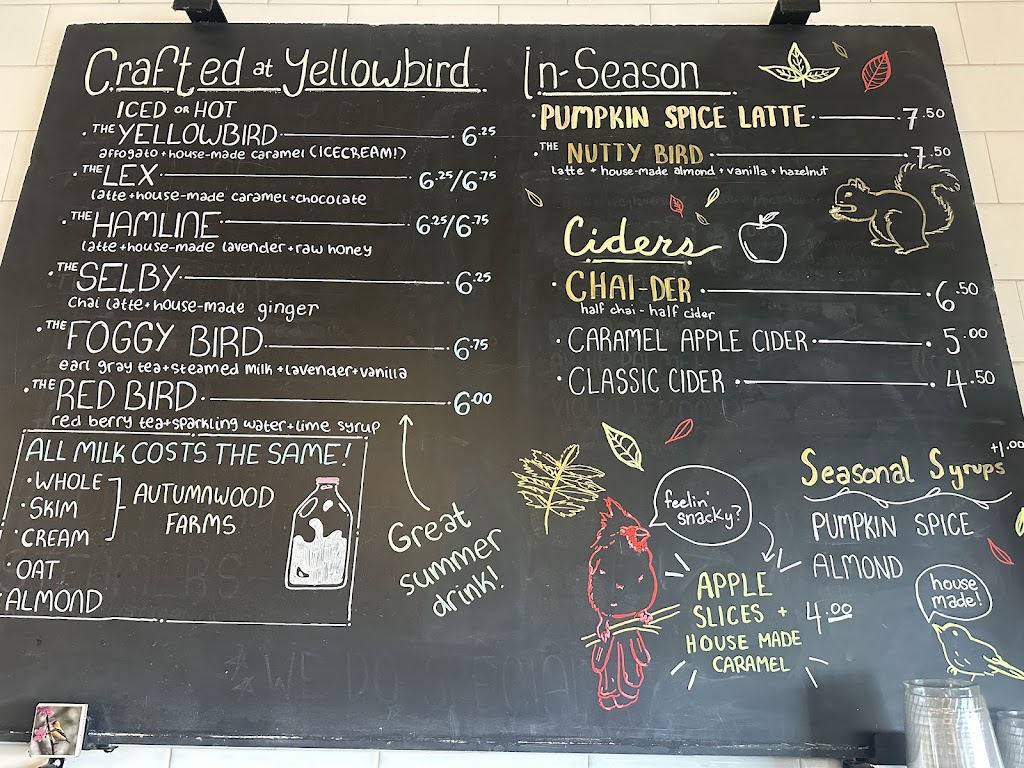 Crafted at Yellowbird
ICED OR HOT
• THE YELLOWBIRD 6.25
affogato + house-made caramel (ICECREAM!)
• THE LEX 6.25/6.75
latte + house-made caramel + chocolate
• THE HAMLINE 6.25/6.75
latte + house-made lavender + raw honey
• THE SELBY 6.25
chai latte + house-made ginger
• THE FOGGY BIRD 6.75
earl gray tea + steamed milk + lavender + vanilla
• THE RED BIRD 6.00
red berry tea + sparkling water + lime syrup
ALL MILK COSTS THE SAME!
• WHOLE
• SKIM
• CREAM
AUTUMNWOOD
FARMS
• OAT
• ALMOND
Great
summer
drink!
In-Season
• PUMPKIN SPICE LATTE 7.50
• THE NUTTY BIRD 7.50
latte + house-made almond + vanilla + hazelnut
Ciders
• CHAI-DER 6.50
half chai - half cider
• CARAMEL APPLE CIDER 5.00
• CLASSIC CIDER 4.50
feelin'
snacky?
APPLE
SLICES +
HOUSE MADE
CARAMEL
4.00
Seasonal Syrups +1.00
PUMPKIN SPICE
ALMOND
house
made!
WE DO